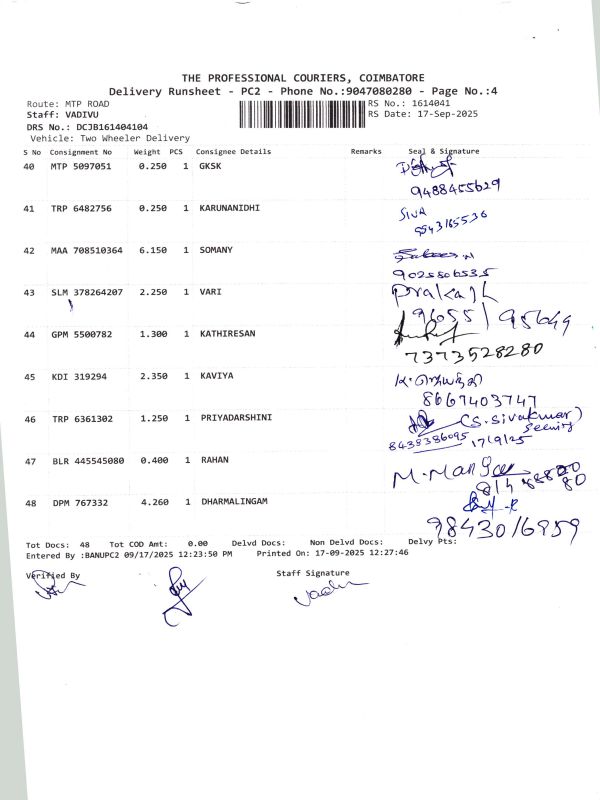 THE PROFESSIONAL COURIERS, COIMBATORE
Delivery Runsheet - PC2 - Phone No.:9047080280 - Page No.:4
Route: MTP ROAD RS No.: 1614041
Staff: VADIVU RS Date: 17-Sep-2025
DRS No.: DCJB161404104
Vehicle: Two Wheeler Delivery
S No Consignment No Weight PCS Consignee Details Remarks Seal & Signature
40 MTP 5097051 0.250 1 GKSK
9488455629
41 TRP 6482756 0.250 1 KARUNANIDHI SIVA
9543165536
42 MAA 708510364 6.150 1 SOMANY
9025806535
43 SLM 378264207 2.250 1 VARI Prakash
96055 / 95649
44 GPM 5500782 1.300 1 KATHIRESAN
7373528280
45 KDI 319294 2.350 1 KAVIYA
8667403747
46 TRP 6361302 1.250 1 PRIYADARSHINI (S. Sivakumar)
8438386095 17/9/25
47 BLR 445545080 0.400 1 RAHAN
48 DPM 767332 4.260 1 DHARMALINGAM
9843016959
Tot Docs: 48 Tot COD Amt: 0.00 Delvd Docs: Non Delvd Docs: Delvy Pts:
Entered By :BANUPC2 09/17/2025 12:23:50 PM Printed On: 17-09-2025 12:27:46
Verified By Staff Signature